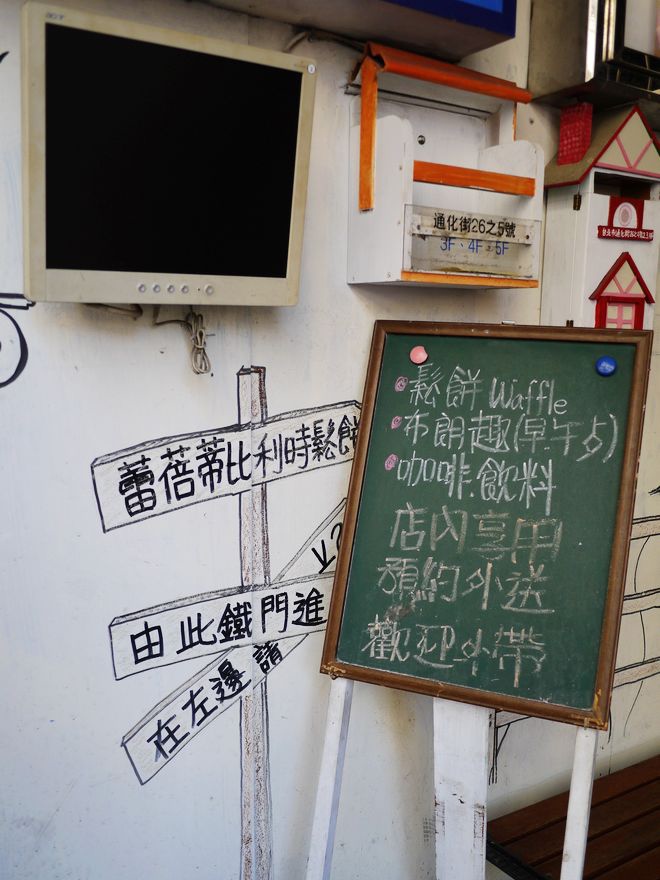 acer
通化街26之5號
3F、4F、5F
鬆餅 Waffle
布朗趣(早.午.夕)
咖啡.飲料
店內享用
預約外送
歡迎外帶
蕾蓓蒂比利時鬆餅
由此鐵門進
在左邊 請